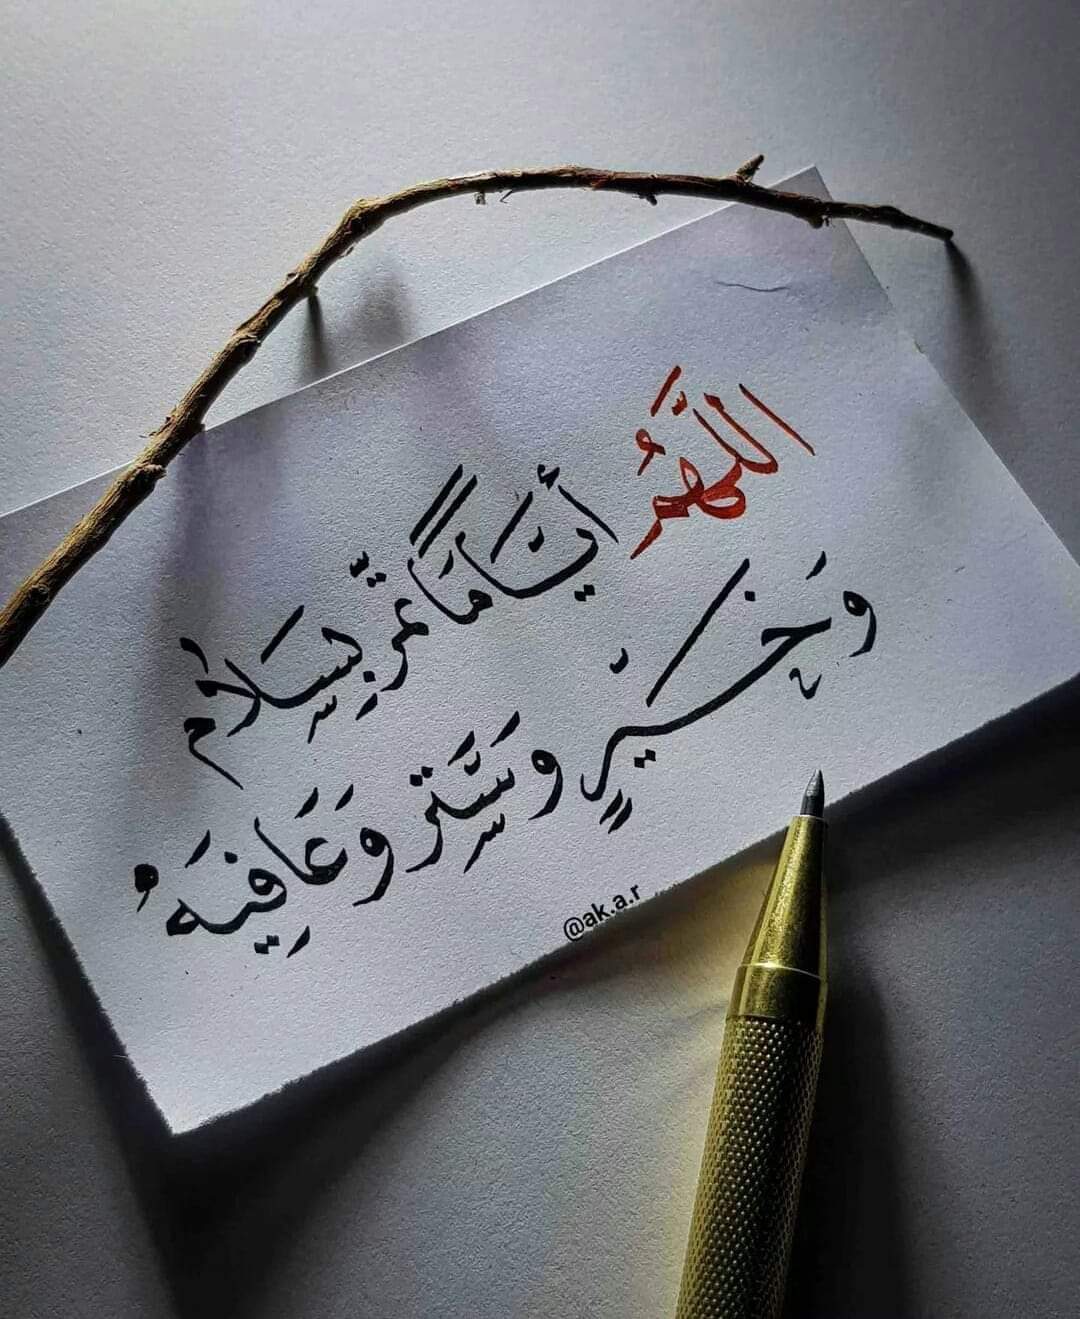 اللَّهُمَّ أيَّامًا تمرّ بِسَلَام
وَخَيْرٍ وَسَِتر وَعَافِيَه
@ak.a.r